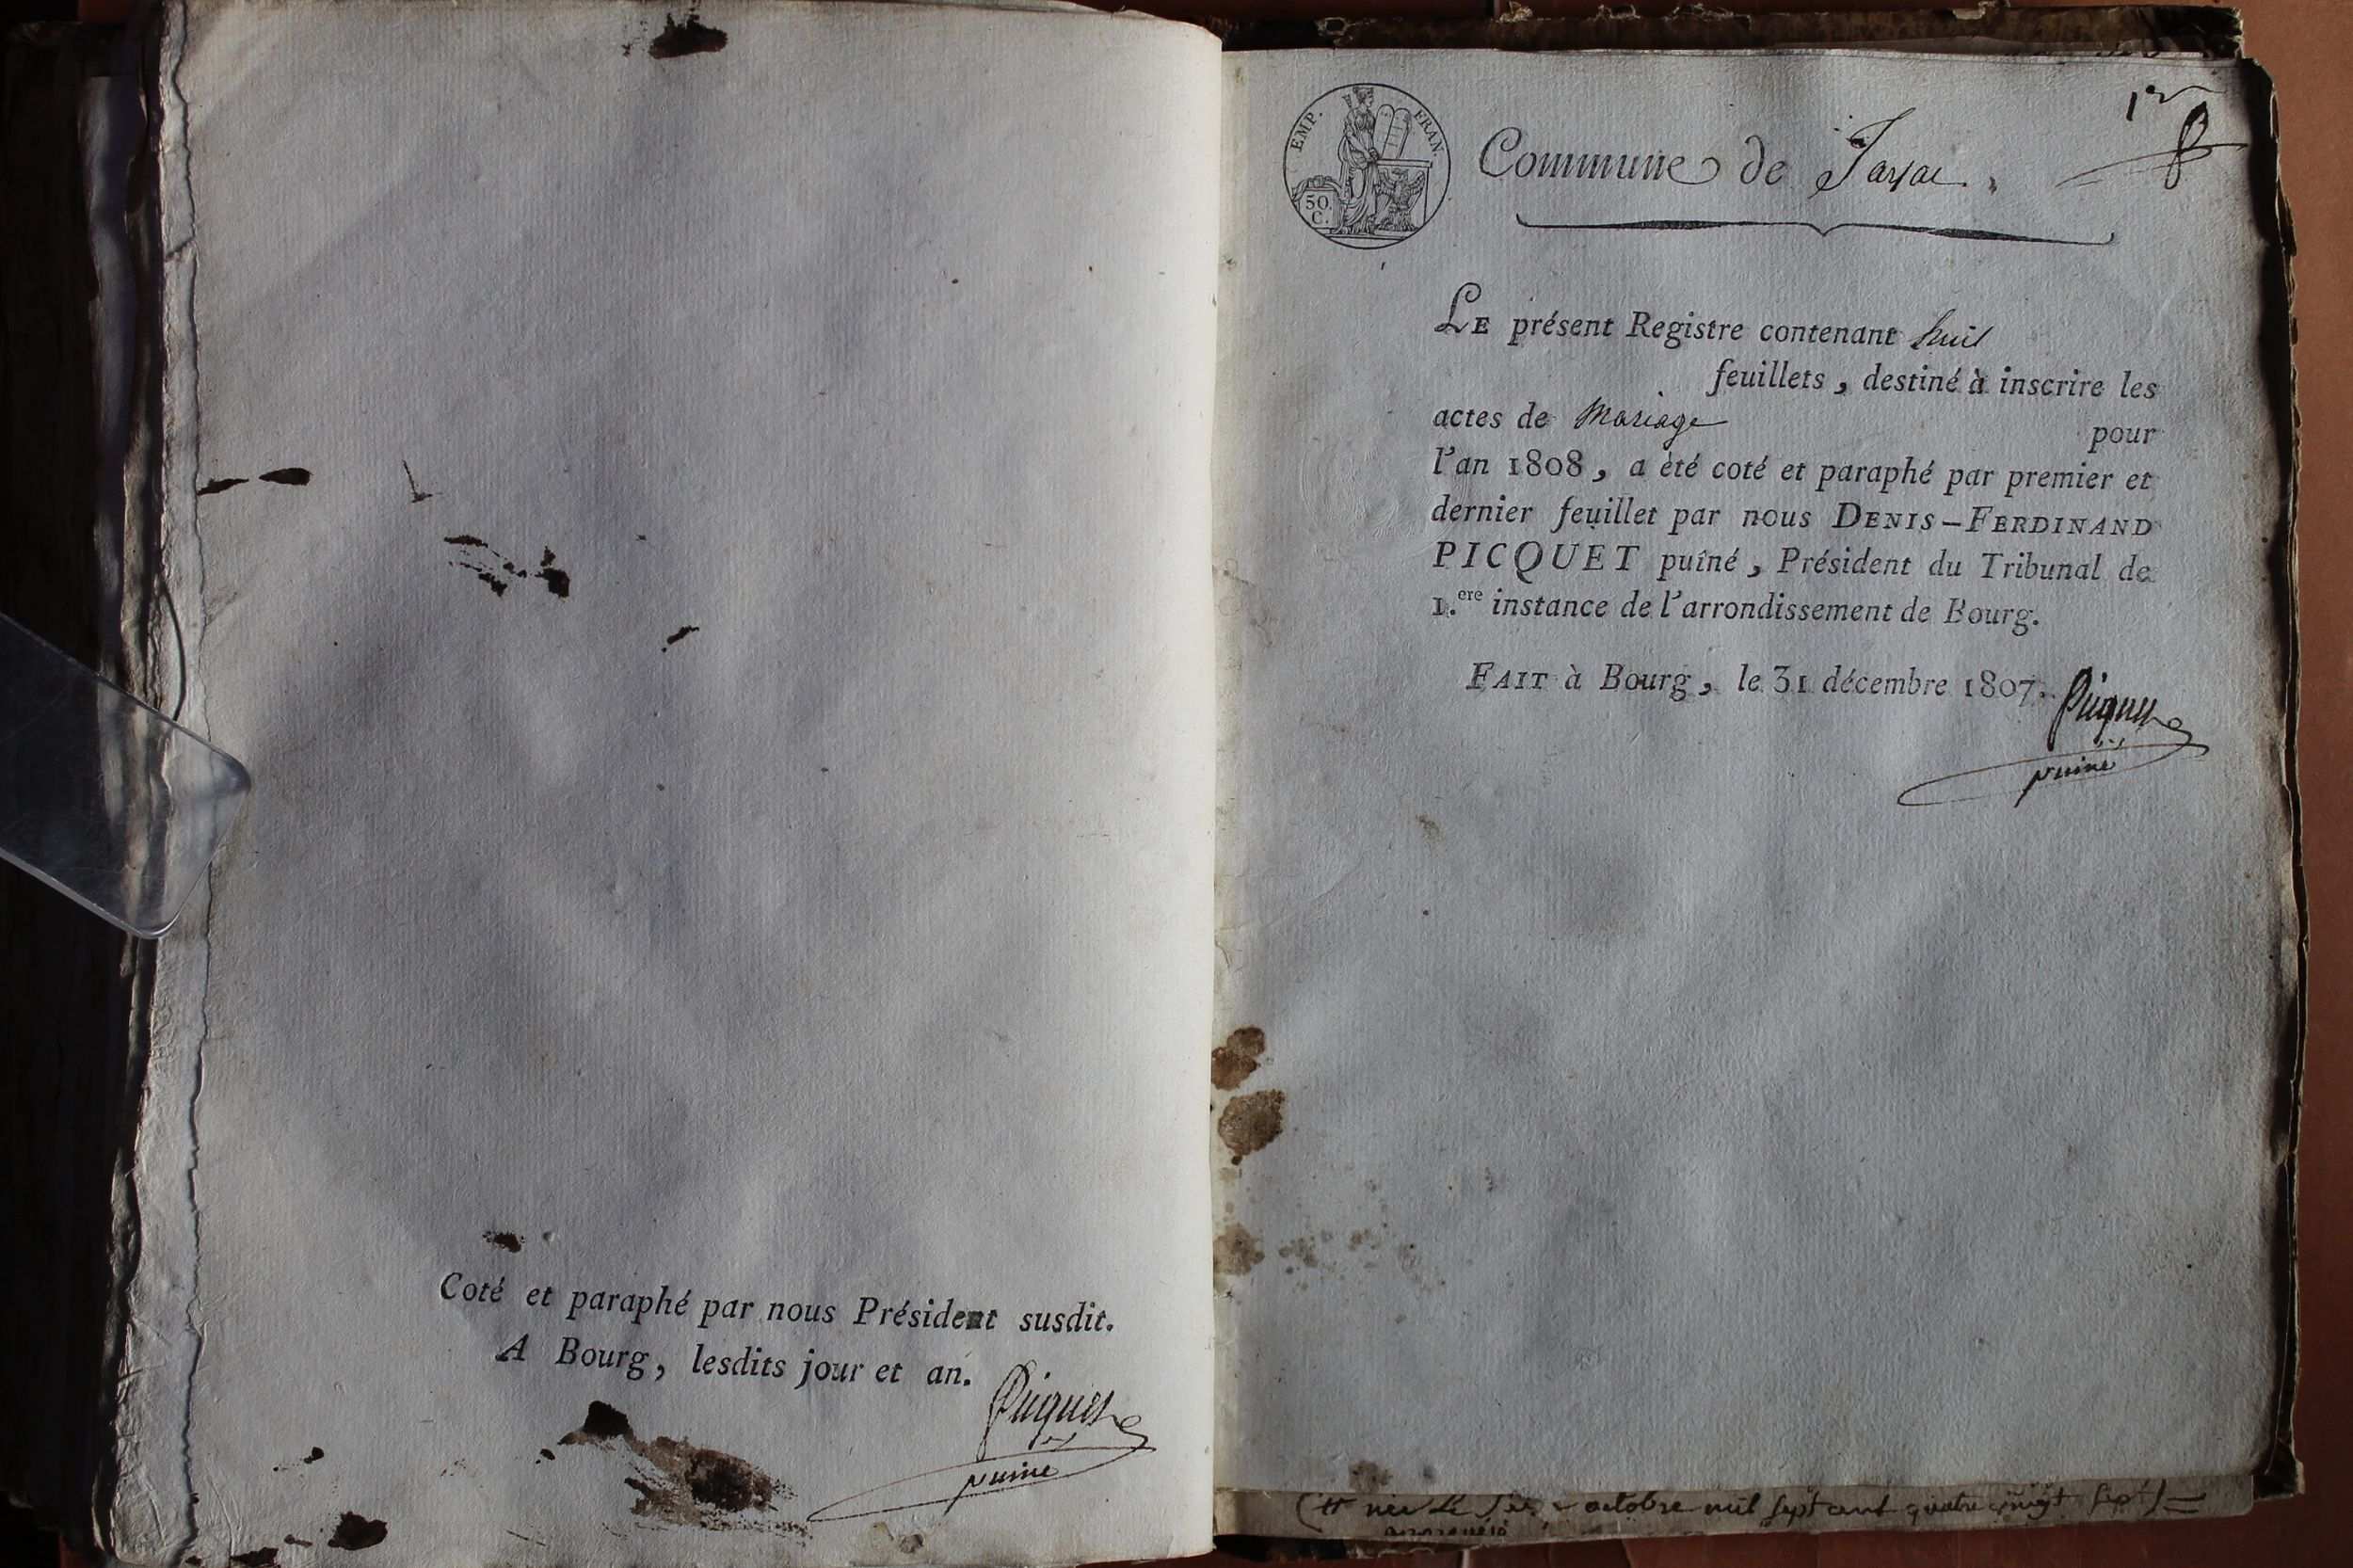 Coté et paraphé par nous Président susdit.
A Bourg, lesdits jour et an.
Picquet
puiné
EMP. FRAN.
50.
C.
1er
8
Commune de Jayac.
LE présent Registre contenant huit
feuillets, destiné à inscrire les
actes de Mariage pour
l'an 1808, a été coté et paraphé par premier et
dernier feuillet par nous DENIS-FERDINAND
PICQUET puîné, Président du Tribunal de
1.ere instance de l'arrondissement de Bourg.
FAIT à Bourg, le 31 décembre 1807.
Picquet
puiné
octobre mil sept cent quatre vingt sept)